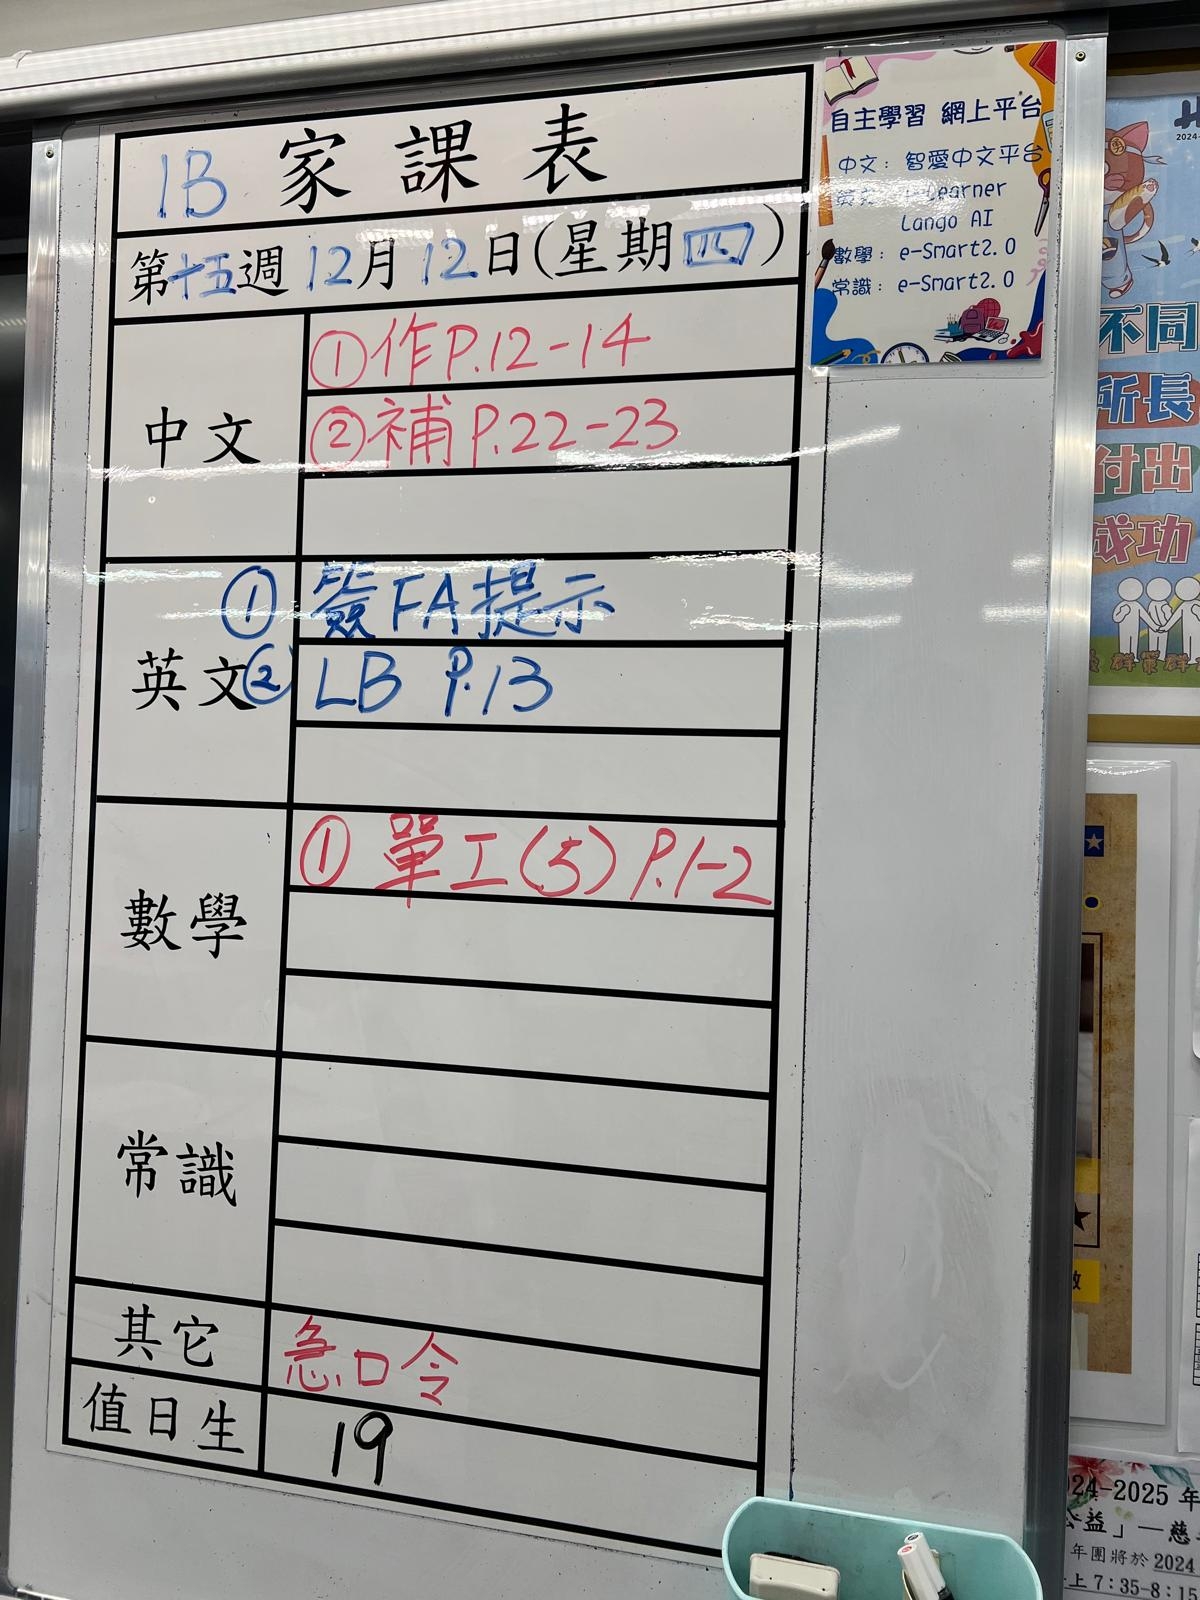 1B 家課表
第十五週 12月12日(星期四)
中文
①作P.12-14
②補P.22-23
英文
① 簽FA提示
② LB P.13
數學
① 單工(5) P.1-2
常識
其它
急口令
值日生
19
自主學習 網上平台
中文：智愛中文平台
Learner
Lango AI
數學：e-Smart2.0
常識：e-Smart2.0
2024-
不同
所長
付出
成功
群策群
24-2025 年
公益」—慈
年團將於 2024
上 7：35-8：15